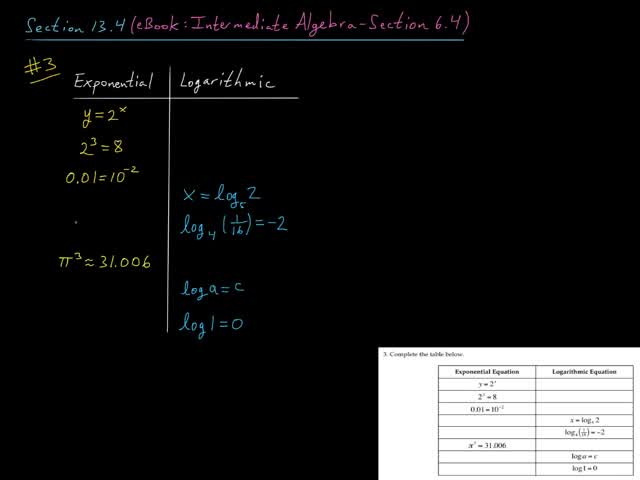 Section 13.4 (eBook: Intermediate Algebra-Section 6.4)
#3
Exponential Logarithmic
y = 2ˣ
2³ = 8
0.01 = 10⁻²
x = log₅ 2
log₄ (1/16) = -2
π³ ≈ 31.006
log a = c
log 1 = 0
3. Complete the table below.
Exponential Equation Logarithmic Equation
y = 2ˣ
2³ = 8
0.01 = 10⁻²
x = log₅ 2
log₄(1/16) = -2
π³ ≈ 31.006
log a = c
log 1 = 0